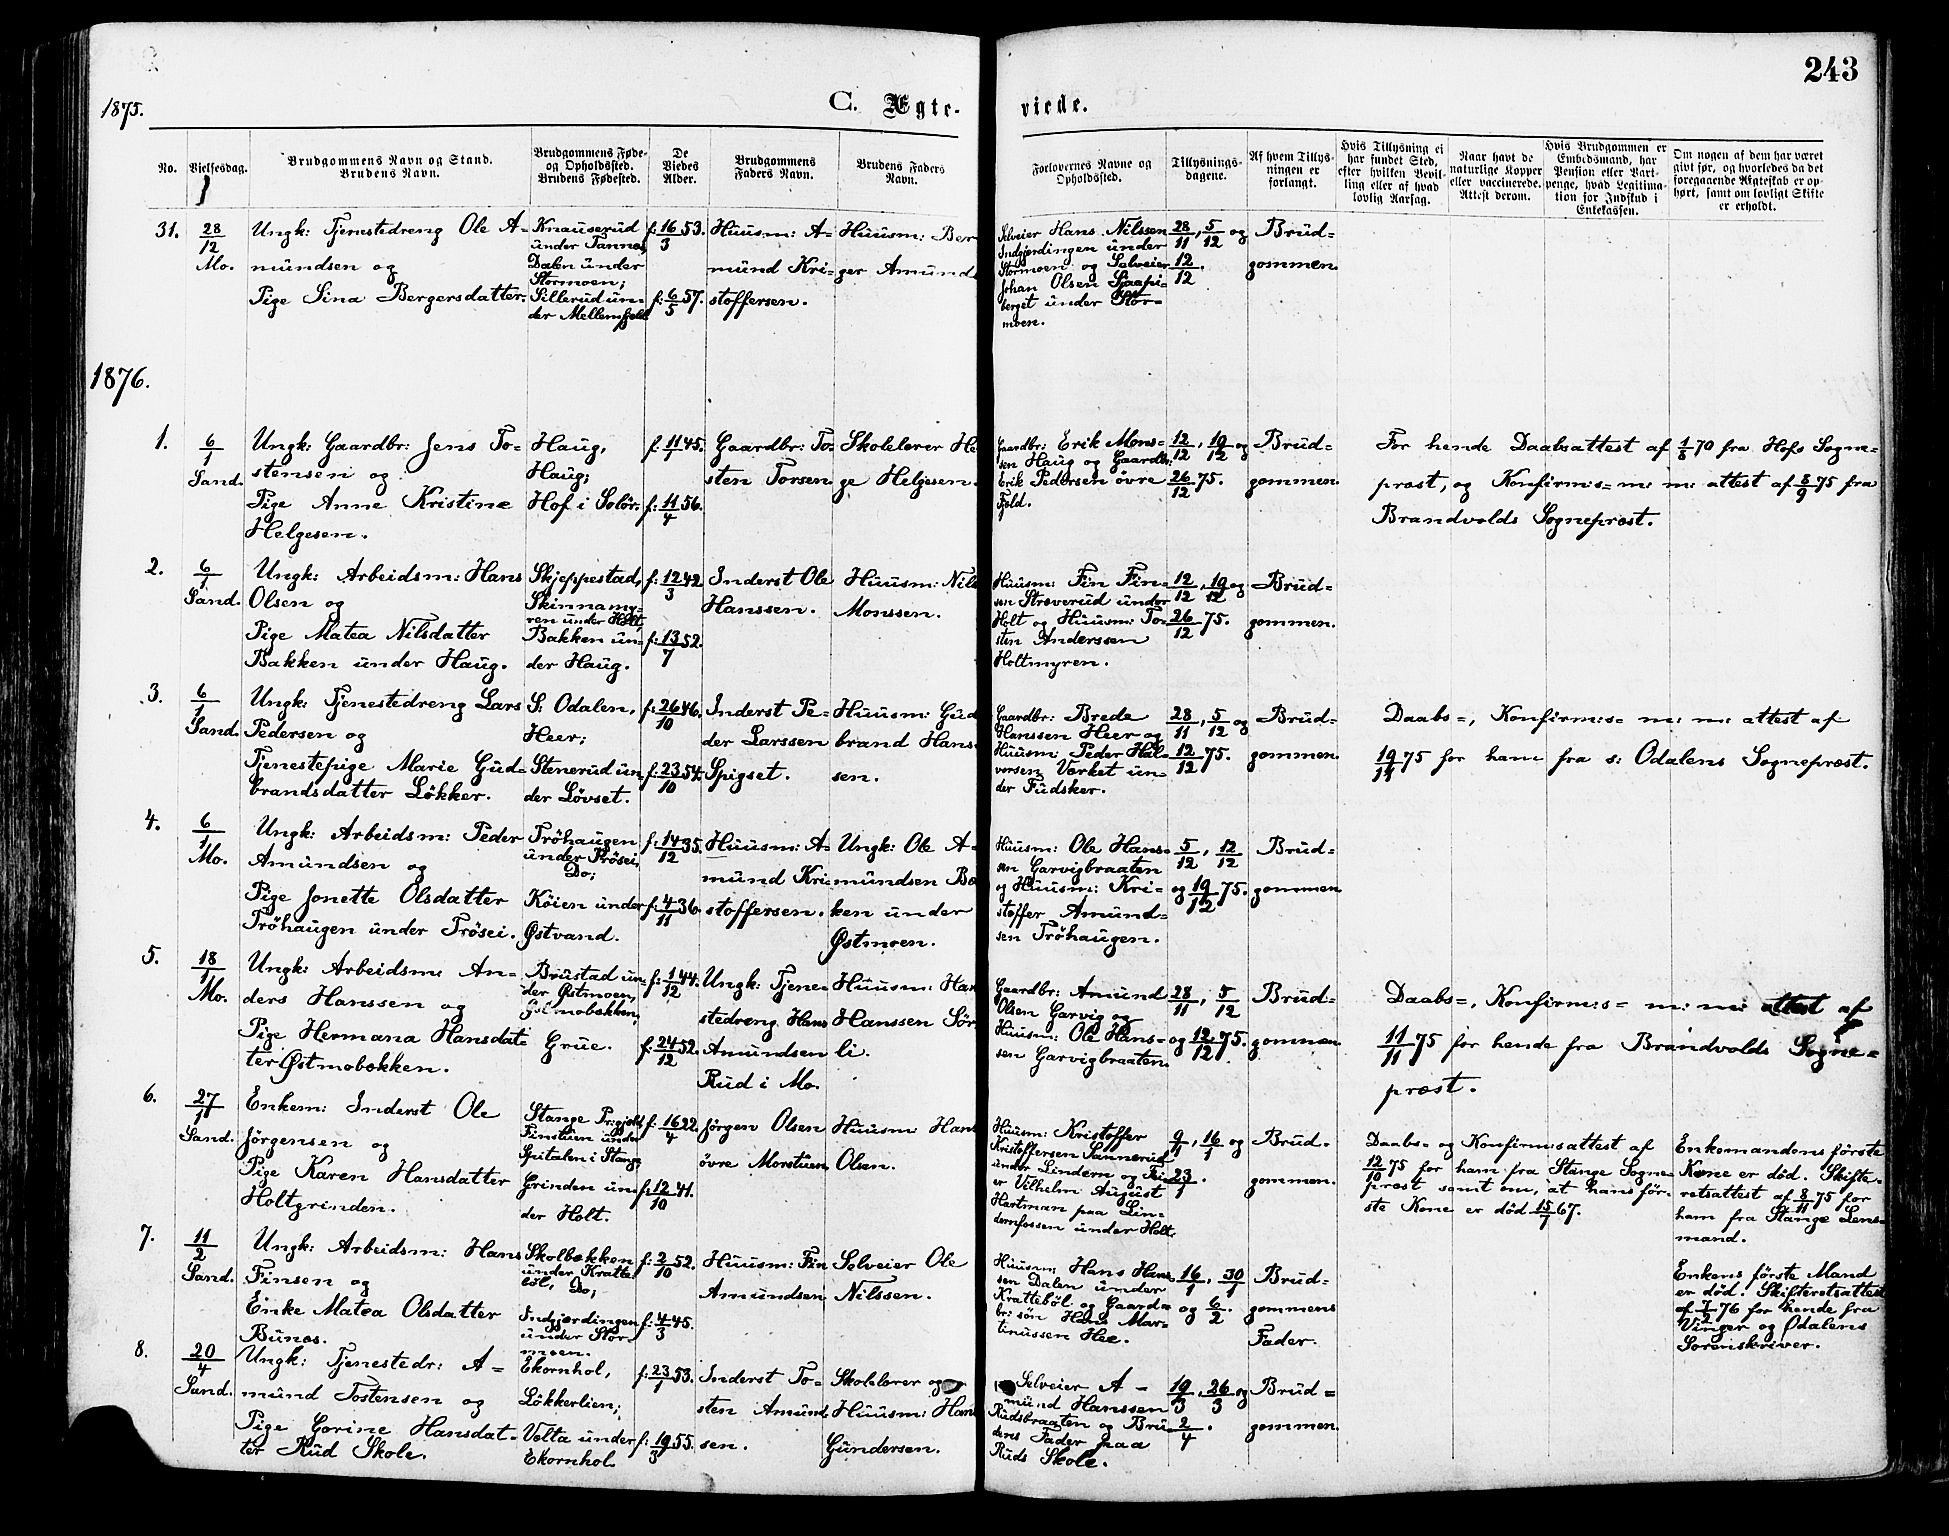 243
1875.
C. Ægte-
viede.
No.
Vielsesdag.
Brudgommens Navn og Stand.
Brudens Navn.
Brudgommens Føde-
og Opholdssted.
Brudens Fødested.
De
Viedes
Alder.
Brudgommens
Faders Navn.
Brudens Faders
Navn.
Forlovernes Navne og
Opholdssted.
Tillysnings-
dagene.
Af hvem Tillys-
ningen er
forlangt.
Hvis Tillysning ei
har fundet Sted,
efter hvilken Bevil-
ling eller af hvad
lovlig Aarsag.
Naar havt de
naturlige Kopper
eller vaccinerede.
Attest derom.
Hvis Brudgommen er
Embedsmand, har
Pension eller Vart-
penge, hvad Legitima-
tion for Indskud i
Enkekassen.
Om nogen af dem har været
givt før, og hvorledes da det
foregaaende Ægteskab er op-
hørt, samt om lovligt Skifte
er erholdt.
31.
28/12
Mo.
Ungk: Tjenestedreng Ole A-
mundsen og
Pige Sina Bergersdatter.
Knauserud
under Tannæs,
Dalen under
Stormoen;
Sillerud un-
der Mellemfjeld
f: 16/3 53.
f: 6/5 57.
Huusm: A-
mund Kri-
stoffersen.
Huusm: Ber
ger Amund
Selveier Hans Nilssen
Indgjærdingen under
Stormoen og Selveier
Johan Olsen
berget under Stor-
moen.
28/11, 5/12 og
12/12.
Brud-
gommen.
1876.
1.
6/1
Sand.
Ungk: Gaardbr: Jens To-
stensen og
Pige Anne Kristine
Helgesen.
Haug,
Haug;
Hof i Solör.
f: 11/1 45.
f: 11/4 56.
Gaardbr: To-
sten Torsen
Skolelærer He
ge Helgesen.
Gaardbr: Erik Mons-
sen Haug og Gaardbr:
Erik Pedersen övre
Fjeld.
12/12, 19/12 og
26/12 75.
Brud-
gommen.
For hende Daabsattest af 1/8 70 fra Hofs Sogne-
præst, og Konfirm:s- m: m: attest af 8/9 75 fra
Brandvolds Sognepræst.
2.
6/1
Sand.
Ungk: Arbeidsm: Hans
Olsen og
Pige Matea Nilsdatter
Bakken under Haug.
Skjeppestad,
Skinnamy-
ren under Holt;
Bakken un-
der Haug.
f: 12/3 42.
f: 13/7 52.
Inderst Ole
Hanssen.
Huusm: Nils
Monssen.
Huusm: Fin Fin-
sen Stræverud under
Holt og Huusm: To-
sten Anderssen
Holtmyren.
12/12, 19/12 og
26/12 75.
Brud-
gommen.
3.
6/1
Sand.
Ungk: Tjenestedreng Lars
Pedersen og
Tjenestepige Marie Gud-
brandsdatter Lökker.
S: Odalen,
Heer;
Stenerud un-
der Lövset.
f: 26/10 46.
f: 23/10 54.
Inderst Pe-
der Larssen
Spigset.
Huusm: Gud
brand Hans-
sen.
Gaardbr: Brede
Hanssen Heer og
Huusm: Peder Hal-
vorsen Værket un-
der Fudsker.
28/11, 5/12 og
12/12 75.
Brud-
gommen.
Daabs-, Konfirm:s- m: m: attest af
19/11 75 for ham fra s: Odalens Sognepræst.
4.
6/1
Mo.
Ungk: Arbeidsm: Peder
Amundsen og
Pige Jonette Olsdatter
Tröhaugen under Trösei.
Tröhaugen
under Trösei,
Do;
Köien under
Østvand.
f: 14/12 35.
f: 4/11 36.
Huusm: A-
mund Kri-
stoffersen.
Ungk: Ole A-
mundsen Bæ
ken under
Østmoen.
Huusm: Ole Hans-
sen Garvigbraaten
og Huusm: Kri-
stoffer Amund-
sen Tröhaugen.
5/12, 12/12
og 19/12 75.
Brud-
gommen
5.
18/1
Mo.
Ungk: Arbeidsm: An-
ders Hanssen og
Pige Hermana Hansdat-
ter Østmobækken.
Brustad un-
der Østmoen,
Østmobækken;
Grue.
f: 1/12 44.
f: 24/12 52.
Ungk: Tjene-
stedreng Hans
Amundsen
Rud i Mo.
Huusm: Han
Hanssen Sör
li.
Gaardbr: Amund
Olsen Garvig og
Huusm: Ole Hans-
sen Garvigbraaten.
28/11, 5/12
og 12/12 75.
Brud-
gommen.
Daabs-, Konfirm:s- m: m: attest af
11/11 75 for hende fra Brandvolds Sogne-
præst.
6.
27/1
Sand.
Enkem: Inderst Ole
Jörgensen og
Pige Karen Hansdatter
Holtgrinden.
Stange Pr:gjeld,
Finstuen under
Spitalen i Stange;
Grinden un-
der Holt.
f: 16/4 22.
f: 12/10 41.
Jörgen Olsen
övre Morstuen
Huusm: Hans
Olsen.
Huusm: Kristoffer
Kristoffersen Sannerud
under Lindern og
er Vilhelm August
Hartman paa Lin-
dernfossen under Holt.
9/1, 16/1 og
23/1.
Brud-
gommen.
Daabs- og Konfirm:sattest af
12/10 75 for ham fra Stange Sogne-
præst samt om, at hans för-
ste Kone er död 15/7 67.
Enkemandens förste
Kone er död. Skifte-
retsattest af 8/11 75 for
ham fra Stange Lens-
mand.
7.
11/2
Sand.
Ungk: Arbeidsm: Hans
Finsen og
Enke Matea Olsdatter
Bunæs.
Skolbækken
under Kratte-
böl, Do;
Indgjærdingen
under Stor-
moen.
f: 2/10 52.
f: 4/3 45.
Huusm: Fin
Amundsen
Selveier Ole
Nilssen.
Huusm: Hans Hans-
sen Dalen under
Kratteböl og Gaard-
br: sön Hans Mar-
tinussen Hee.
16/1, 30/1
og 6/2.
Brud-
gommens
Fader.
Enkens förste Mand
er död. Skifteretsattest
af 7/2 76 for hende fra
Vinger og Odalens
Sorenskriver.
8.
20/4
Sand.
Ungk: Tjenestedr: A-
mund Tostensen og
Pige Gorine Hansdat-
ter Rud Skole.
Ekornhol,
Lökkerlien;
Volta under
Ekornhol.
f: 23/1 53.
f: 19/3 55.
Inderst To-
sten Amund
sen.
Skolelærer og
Huusm: Hans
Gundersen.
Selveier A-
mund Hanssen
Rudsbraaten og Bru-
dens Fader paa
Ruds Skole.
19/3, 26/3 og
2/4.
Brud-
gommen.